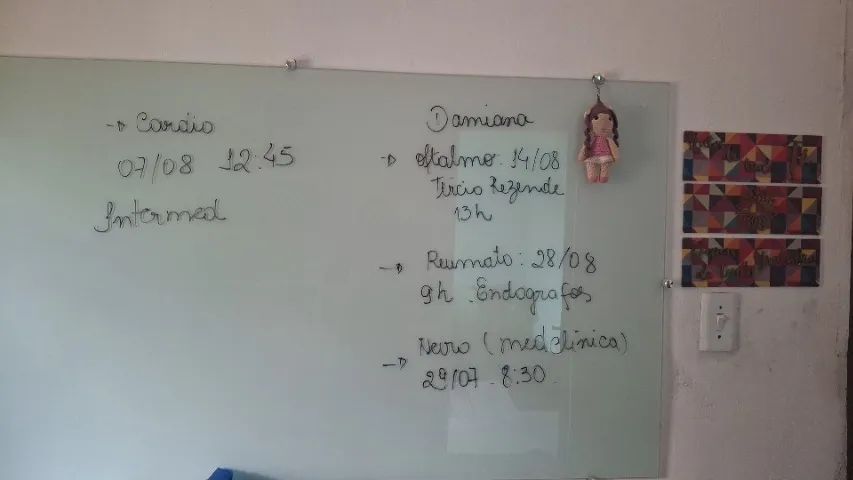 -> Cardio
07/08 12:45
Intermed
Damiana
-> Oftalmo: 14/08
Tércio Rezende
13h
-> Reumato: 28/08
9h. Endografos
-> Neuro (medclinica)
29/07 - 8:30.